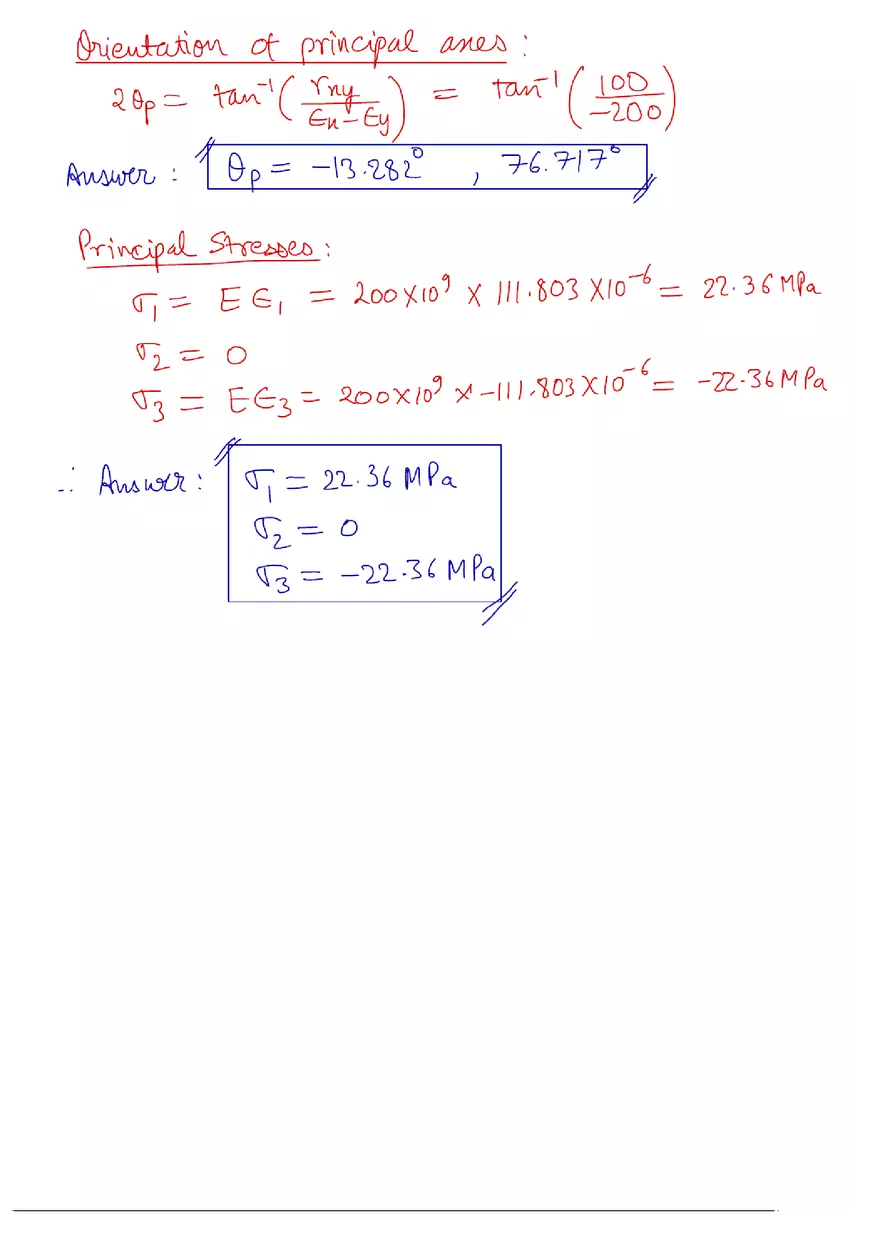 Orientation of principal axes :
2θp = tan⁻¹ ( γxy / εx - εy ) = tan⁻¹ ( 100 / -200 )
Answer : θp = -13.282° , 76.717°
Principal Stresses :
σ1 = E ε1 = 200×10⁹ × 111.803 ×10⁻⁶ = 22.36 MPa
σ2 = 0
σ3 = E ε3 = 200×10⁹ × -111.803 ×10⁻⁶ = -22.36 MPa
∴ Answer : σ1 = 22.36 MPa
σ2 = 0
σ3 = -22.36 MPa